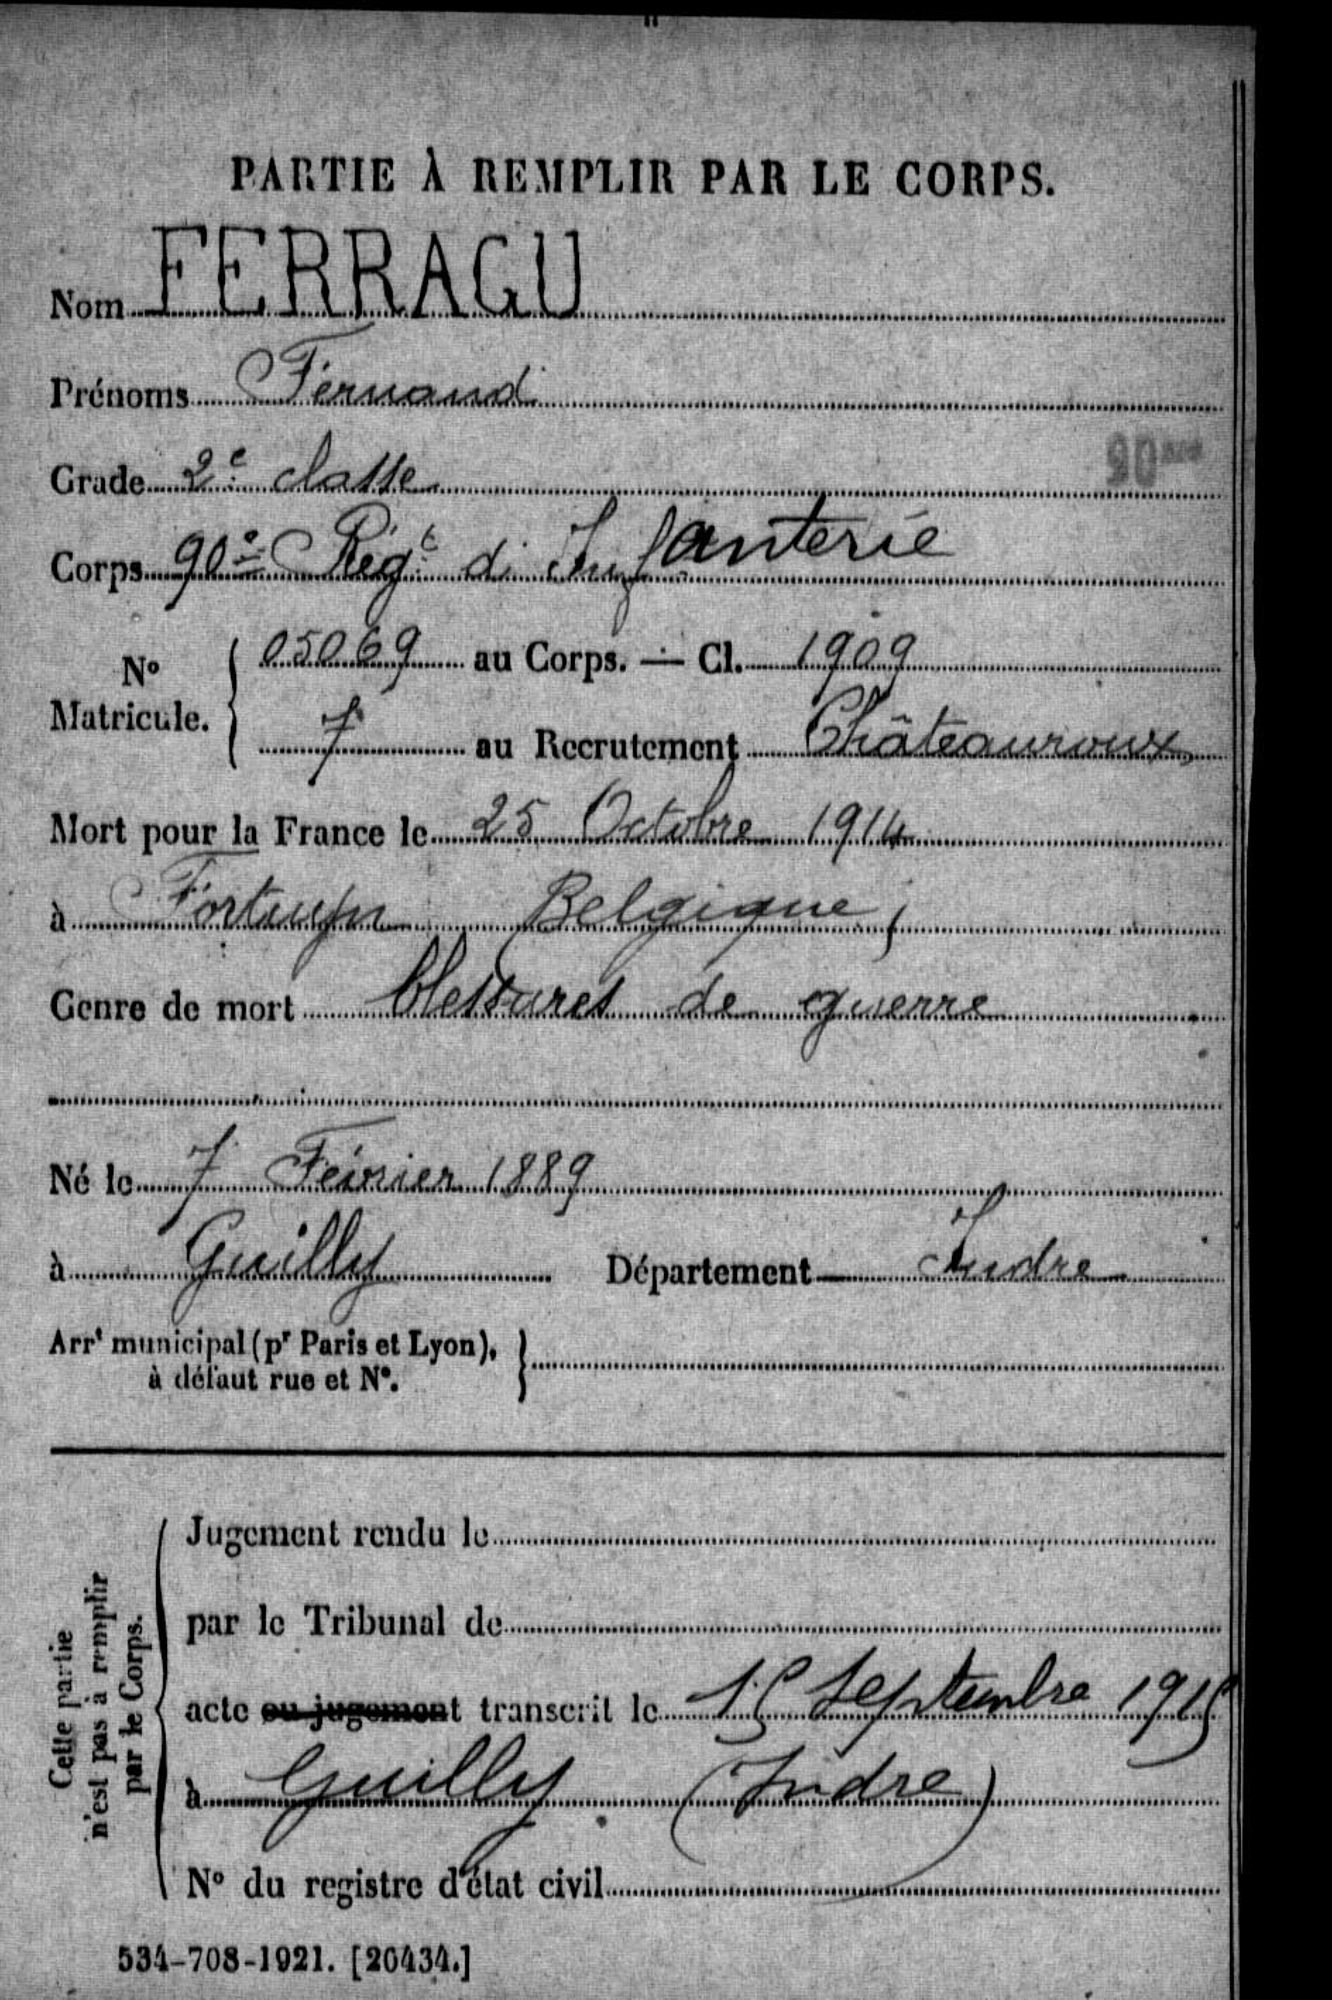 PARTIE À REMPLIR PAR LE CORPS.
Nom FERRAGU
Prénoms Fernand
Grade 2e classe
90
Corps 90e Régt d'Infanterie
No Matricule. 05069 au Corps. — Cl. 1909
7 au Recrutement Châteauroux
Mort pour la France le 25 Octobre 1914
à Belgique
Genre de mort blessures de guerre
Né le 7 Février 1889
à Guilly Département Indre
Arrt municipal (pr Paris et Lyon), à défaut rue et No.
Cette partie n'est pas à remplir par le Corps.
Jugement rendu le
par le Tribunal de
acte ou jugement transcrit le 15 Septembre 1915
à Guilly (Indre)
No du registre d'état civil
534-708-1921. [20434.]